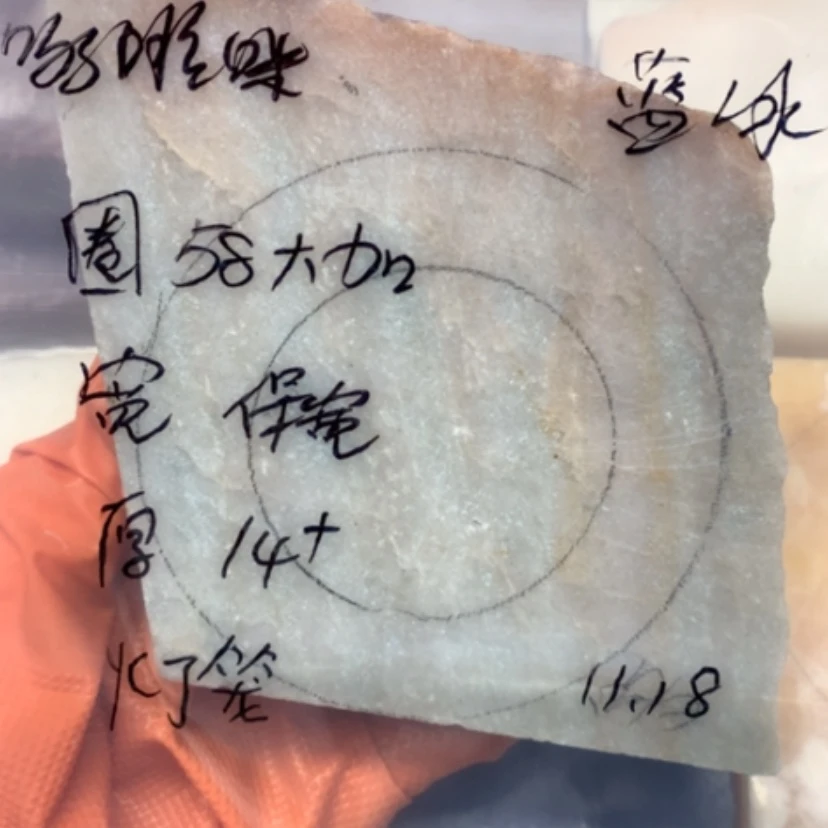 蓝冰
圈 58大加
宽 保宽
厚 14+
灯笼
11.18